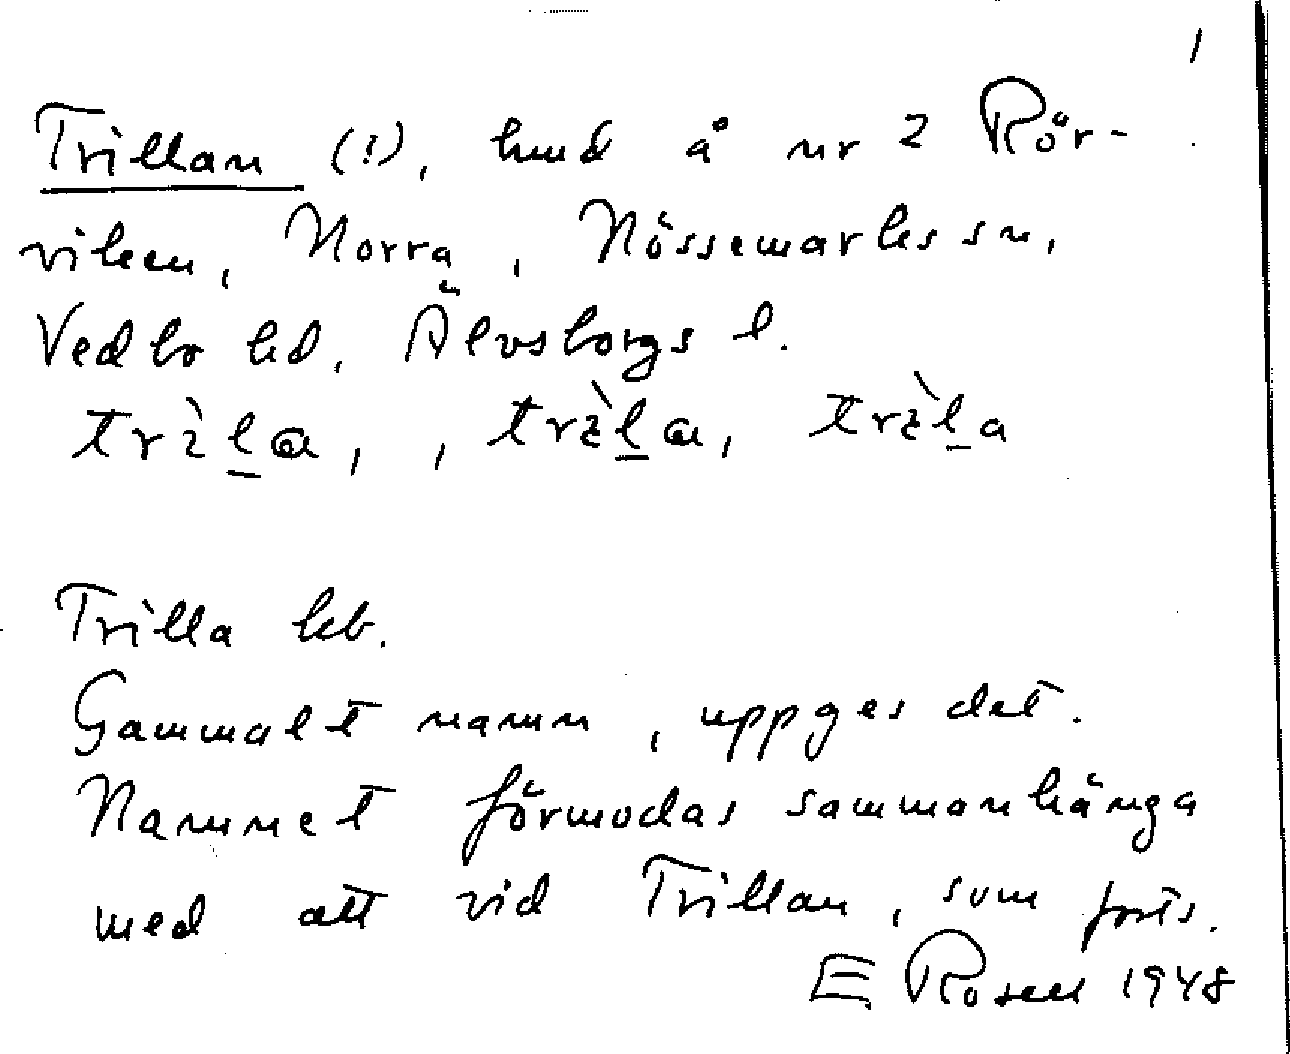 1
Trillan (!), hmd å nr 2 Rör-
viken, Norra, Nössemarks sn,
Vedbo hd, Älvsborgs l.
Trilla kb.
Gammalt namn, uppges det.
Namnet förmodas sammanhänga
med att vid Trillan, som forts.
E Rosell 1948